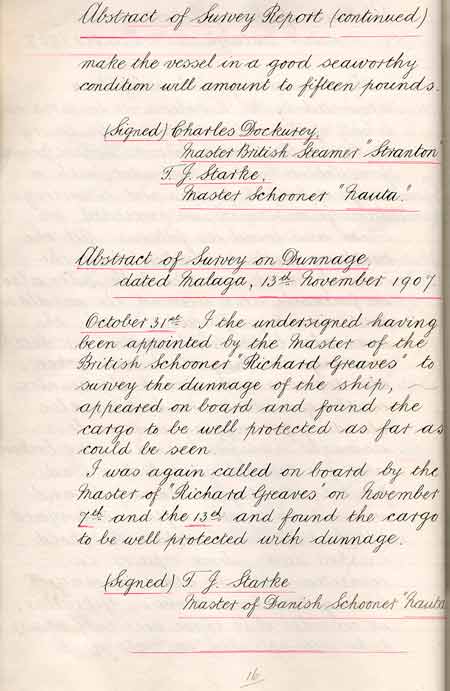 Abstract of Survey Report (continued)
make the vessel in a good seaworthy
condition will amount to fifteen pounds.
(Signed) Charles Dockurey,
Master British Steamer "Stranton"
T. J. Starke,
Master Schooner "Nauta."
Abstract of Survey on Dunnage,
dated Malaga, 13th November 1907.
October 31st I the undersigned having
been appointed by the Master of the
British Schooner "Richard Greaves" to
survey the dunnage of the ship,
appeared on board and found the
cargo to be well protected as far as
could be seen.
I was again called on board by the
Master of "Richard Greaves" on November
7th and the 13th and found the cargo
to be well protected with dunnage.
(Signed) T. J. Starke
Master of Danish Schooner "Nauta
16